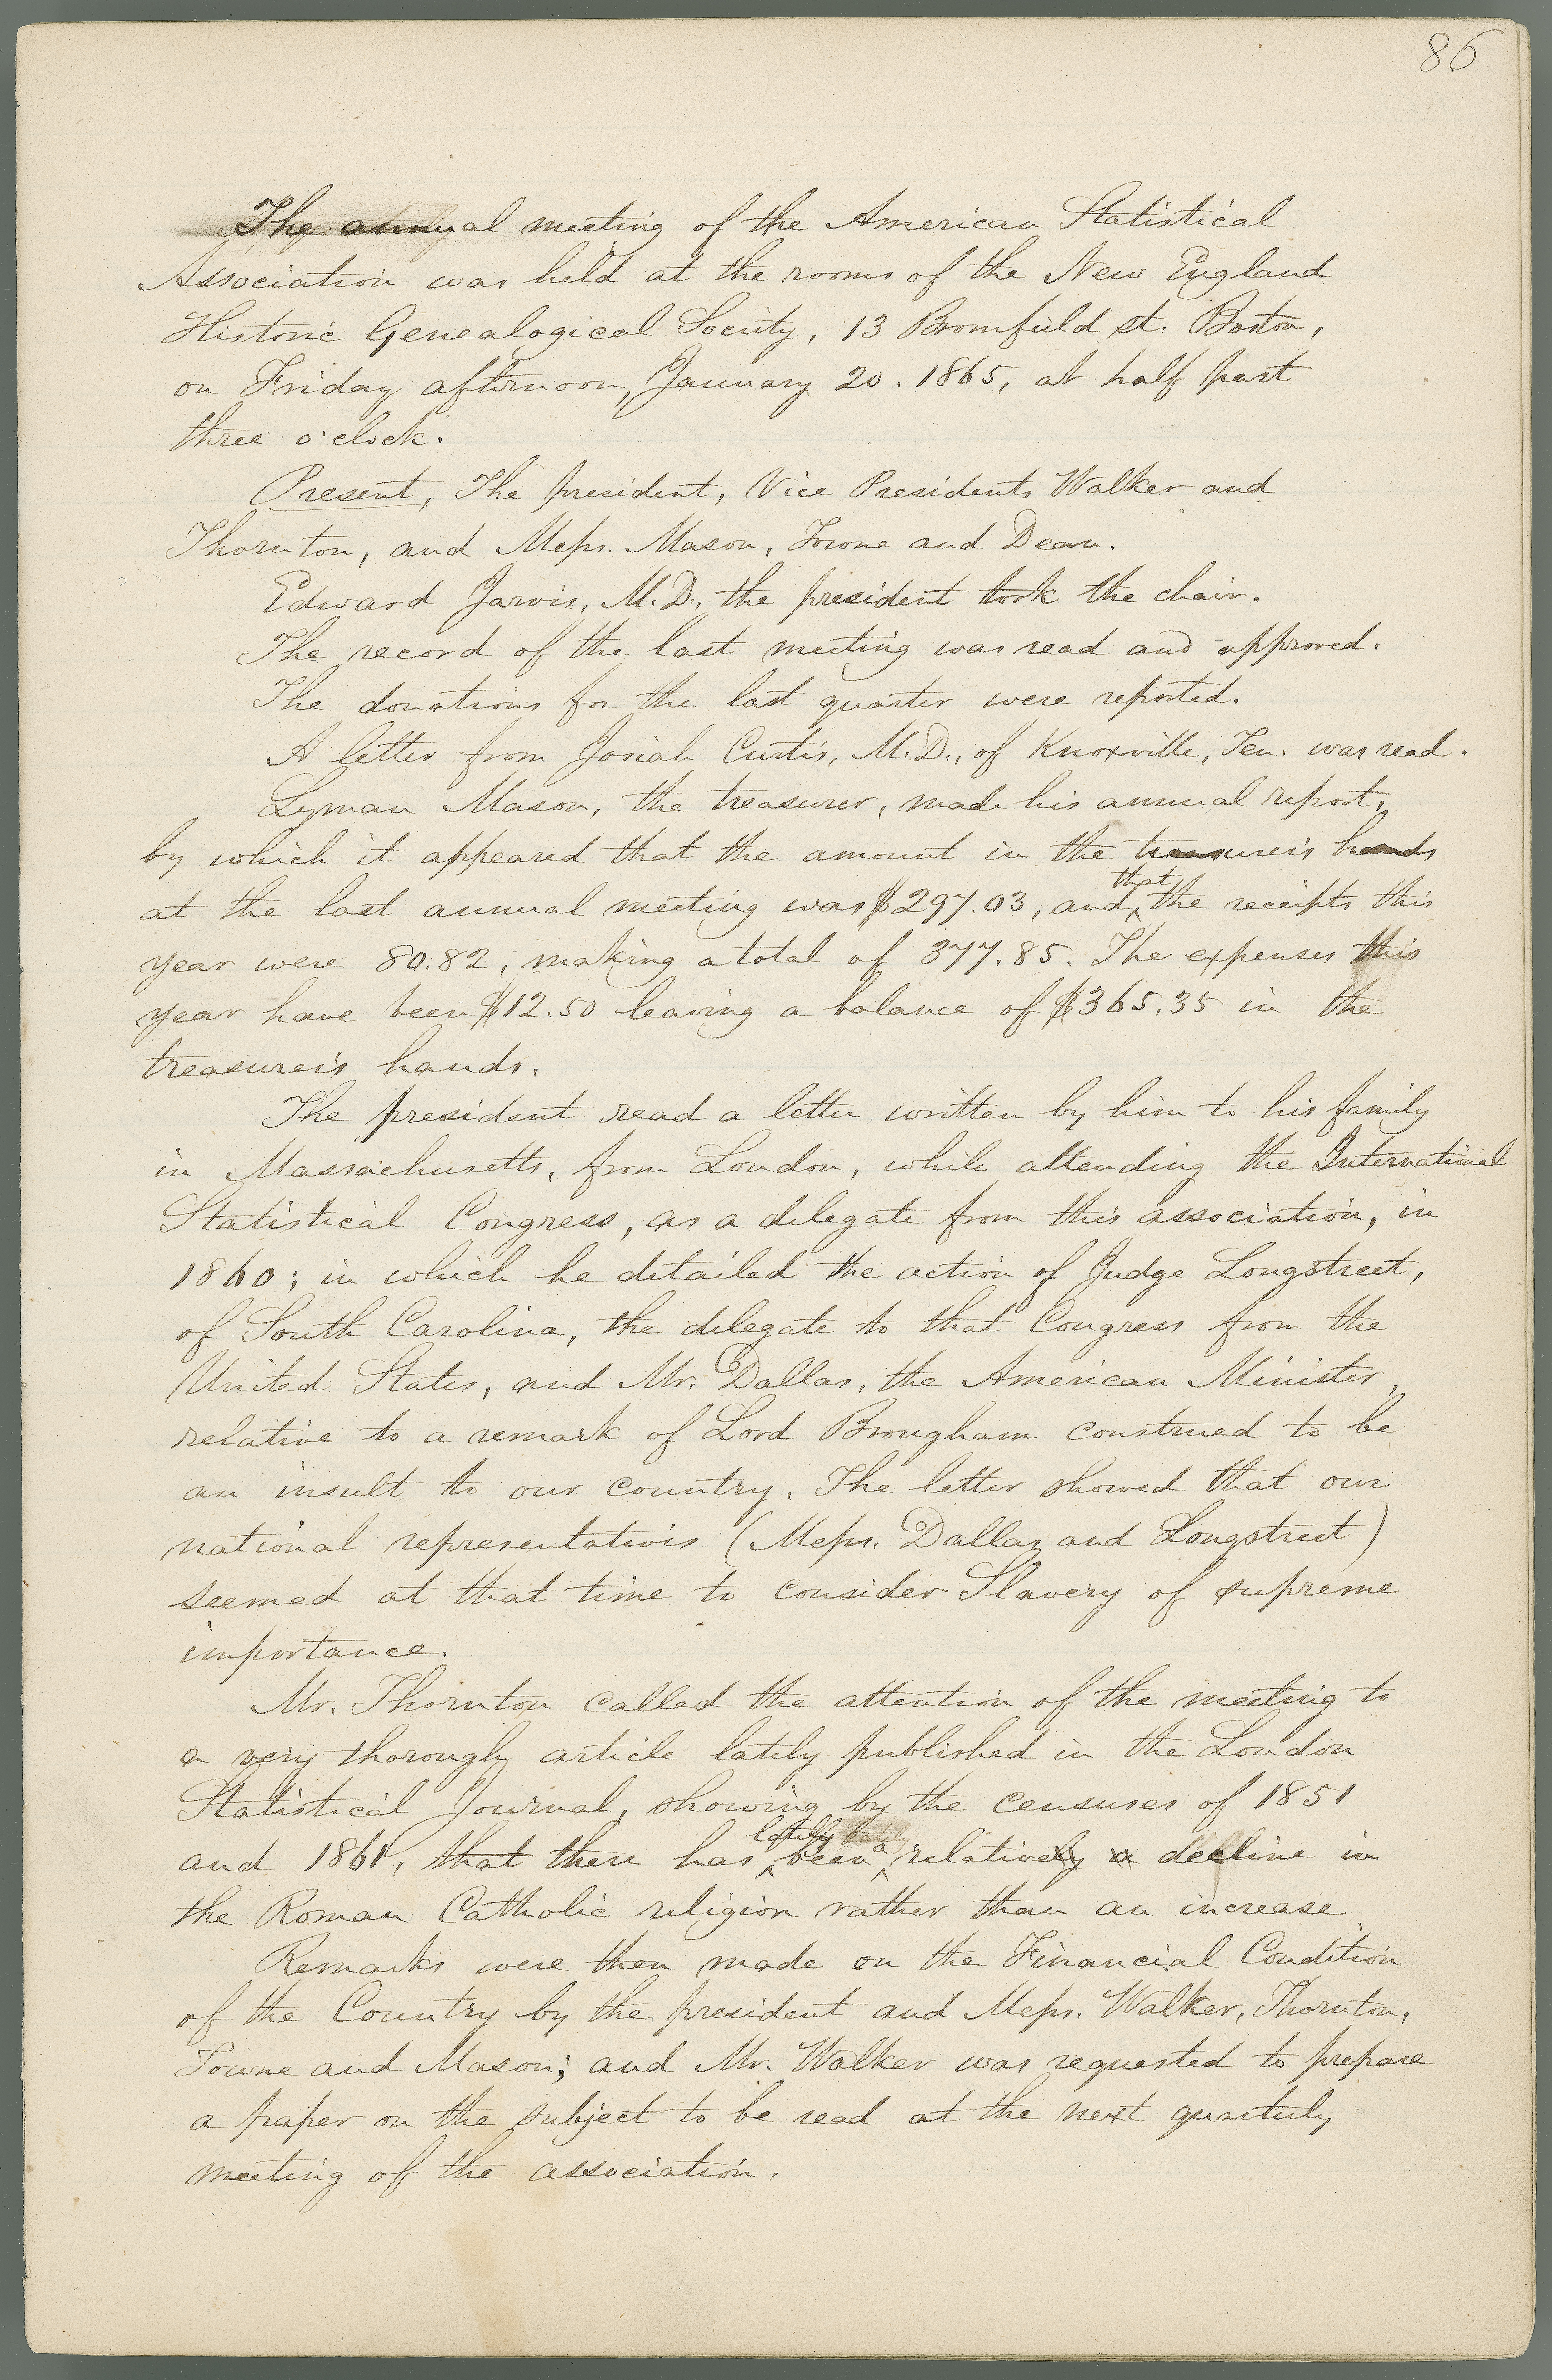 86
The annual meeting of the American Statistical
Association was held at the rooms of the New England
Historic Genealogical Society, 13 Bromfield st. Boston,
on Friday afternoon, January 20. 1865, at half past
three o'clock.
Present, The president, Vice Presidents Walker and
Thornton, and Messrs. Mason, Towne and Dean.
Edward Jarvis, M.D., the president took the chair.
The record of the last meeting was read and approved.
The donations for the last quarter were reported.
A letter from Josiah Curtis, M.D., of Knoxville, Ten. was read.
Lyman Mason, the treasurer, made his annual report,
by which it appeared that the amount in the treasurer's hands
at the last annual meeting was $297.03, and that the receipts this
year were 80.82, making a total of 377.85. The expenses this
year have been $12.50 leaving a balance of $365.35 in the
treasurer's hands.
The president read a letter written by him to his family
in Massachusetts, from London, while attending the International
Statistical Congress, as a delegate from this association, in
1860; in which he detailed the action of Judge Longstreet,
of South Carolina, the delegate to that Congress from the
United States, and Mr. Dallas, the American Minister,
relative to a remark of Lord Brougham construed to be
an insult to our country. The letter showed that our
national representatives (Messrs. Dallas and Longstreet)
seemed at that time to consider Slavery of supreme
importance.
Mr. Thornton called the attention of the meeting to
a very thorougly article lately published in the London
Statistical Journal, showing by the censuses of 1851
and 1861, that there has lately been a relatively a decline in
the Roman Catholic religion rather than an increase
Remarks were then made on the Financial Condition
of the Country by the president and Messrs. Walker, Thornton,
Towne and Mason; and Mr. Walker was requested to prepare
a paper on the subject to be read at the next quarterly
meeting of the association.